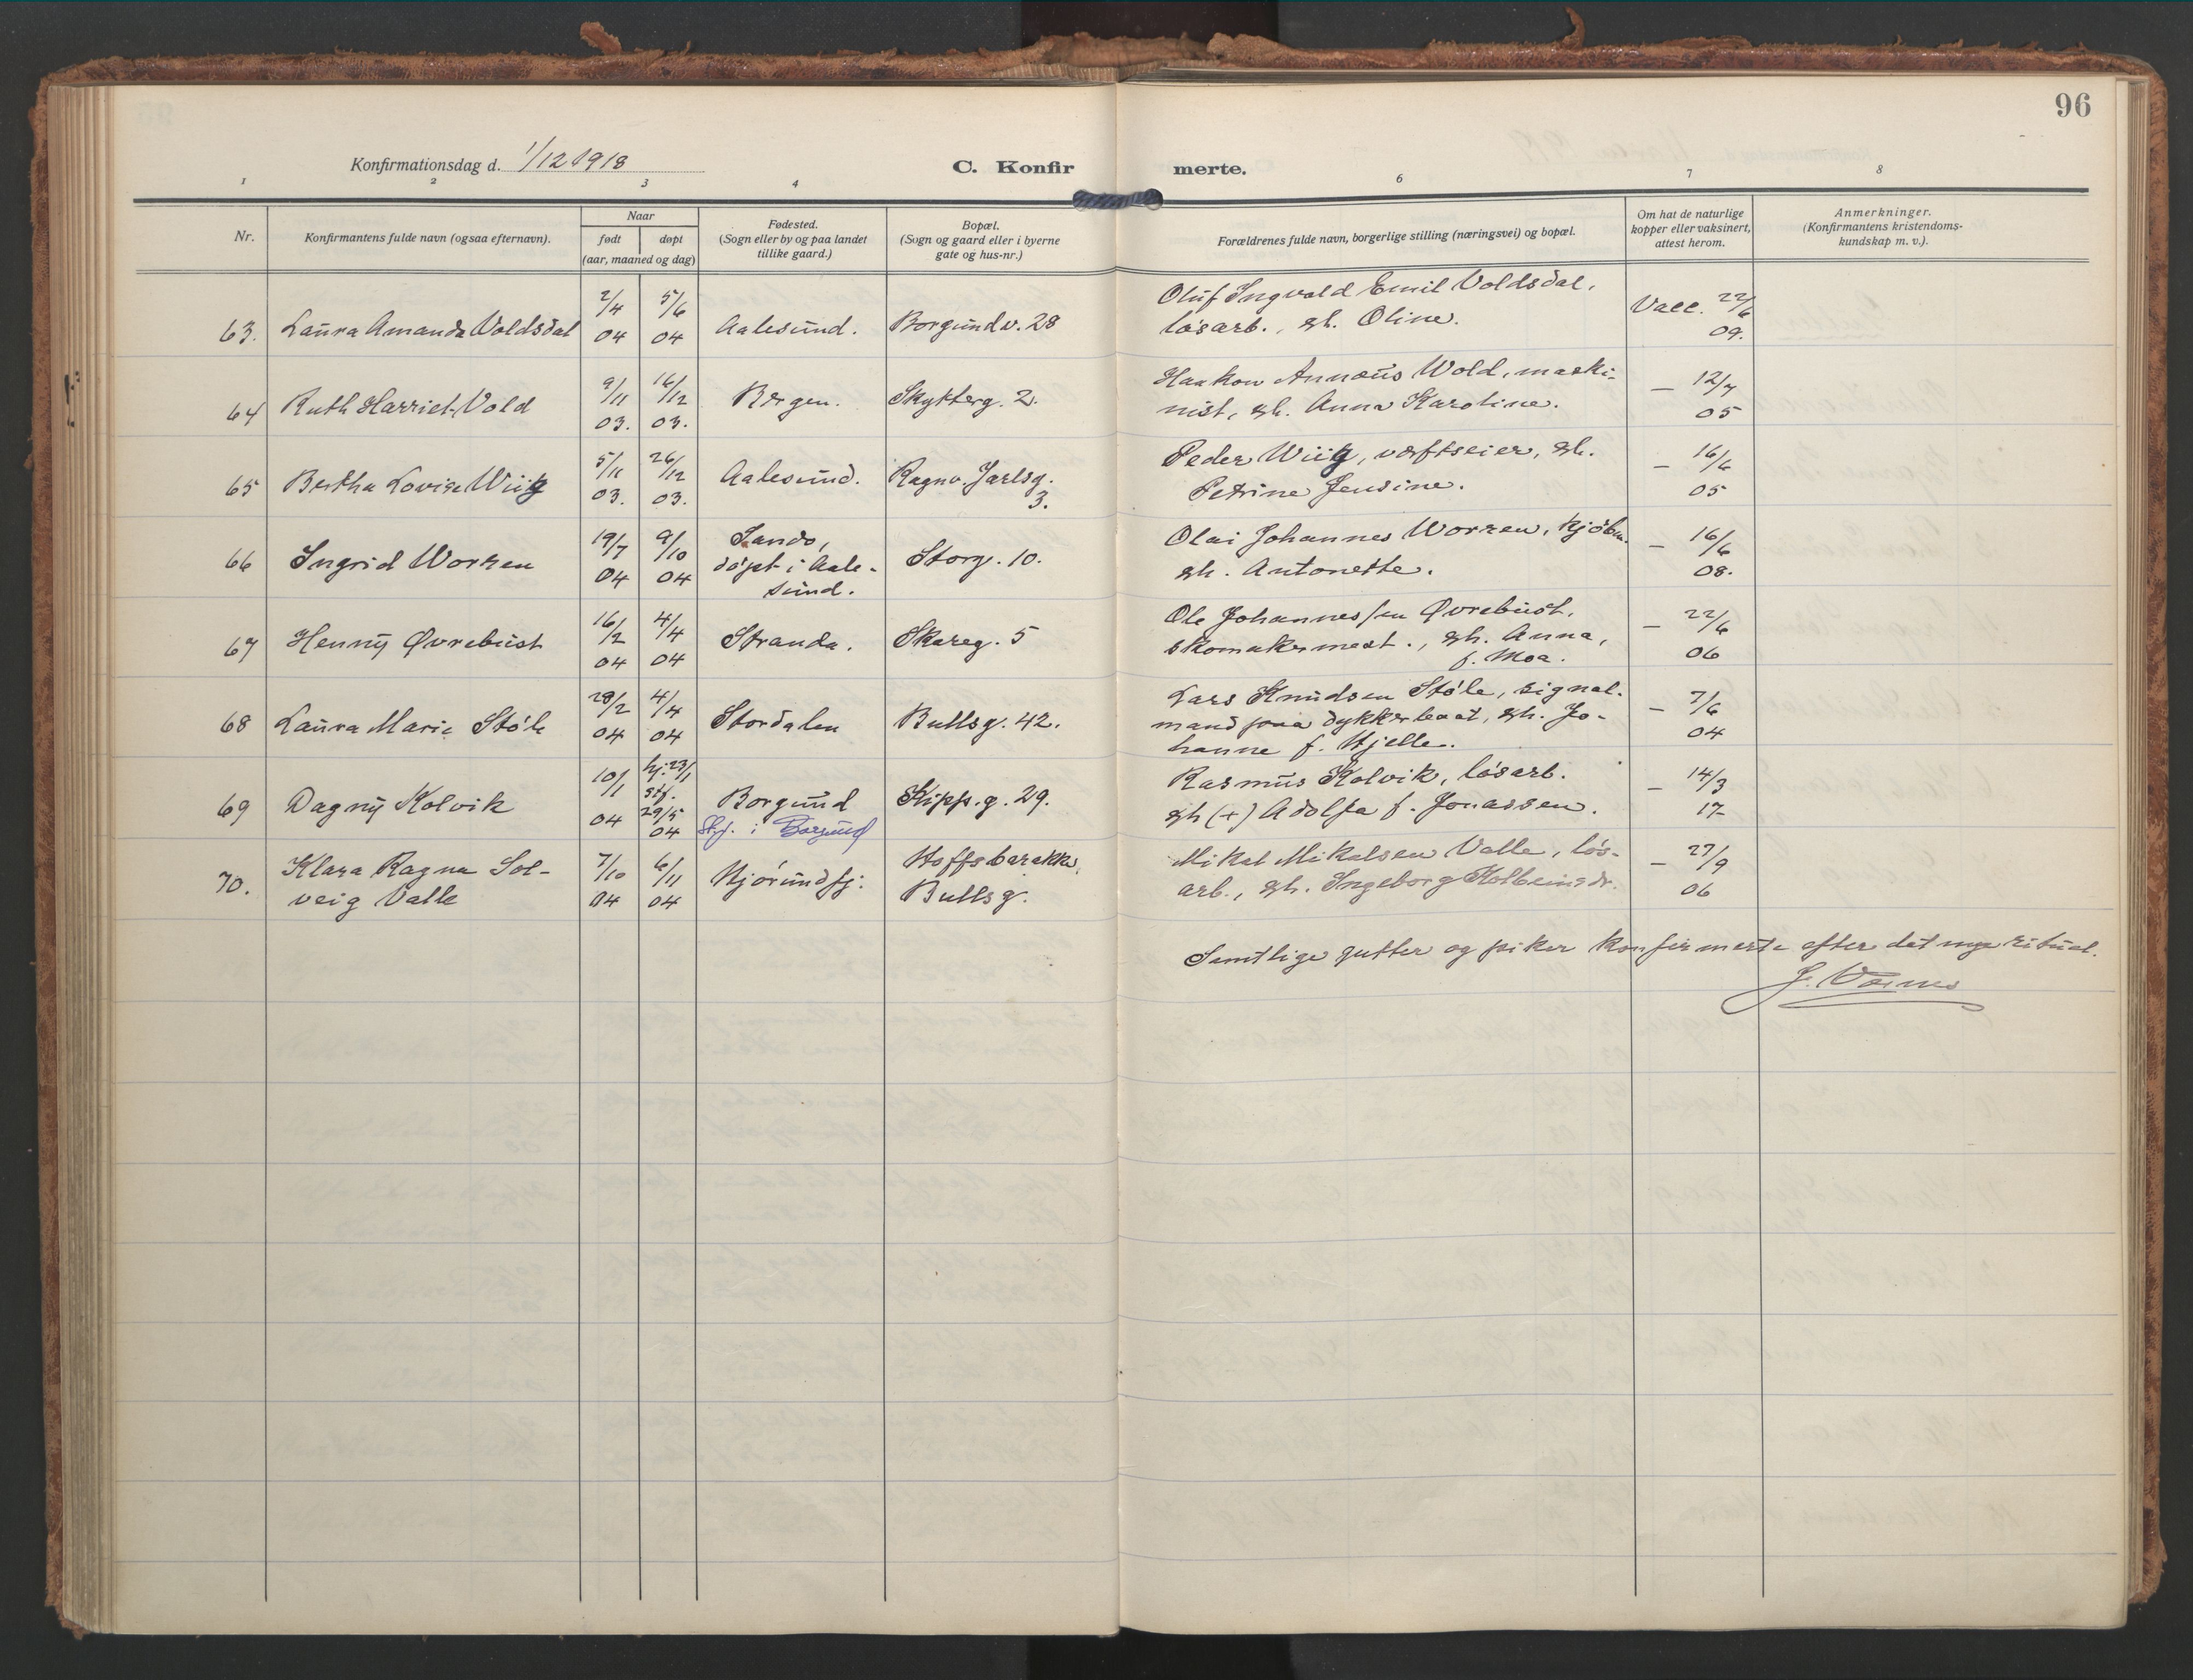 96
Konfirmationsdag d. 1/12 1918
C. Konfir
merte.
1 2 3 4 6 7 8
Nr.
Konfirmantens fulde navn (ogsaa efternavn).
Naar
født døpt
(aar, maaned og dag)
Fødested.
(Sogn eller by og paa landet
tillike gaard.)
Bopæl.
(Sogn og gaard eller i byerne
gate og hus-nr.)
Forældrenes fulde navn, borgerlige stilling (næringsvei) og bopæl.
Om hat de naturlige
kopper eller vaksinert,
attest herom.
Anmerkninger.
(Konfirmantens kristendoms-
kundskap m. v.).
63. Laura Amanda Voldsdal
2/4 04
5/6 04
Aalesund.
Borgundv. 28
Oluf Ingvald Emil Voldsdal,
løsarb., gh. Oline.
Vacc. 22/6
09.
64 Ruth Harriet Vold
9/11 03.
16/12 03.
Bergen.
Skytterg. 2.
Haakon Annæus Wold, maski-
nist, gh. Anna Karoline.
— 12/7
05
65 Bertha Lovise Wiig
5/11 03.
26/12 03.
Aalesund.
Ragnv. Jarlsg.
3.
Peder Wiig, værftseier, gh.
Petrine Jensine.
— 16/6
05
66 Ingrid Worren
19/7 04
9/10 04
Sandø,
døpt i Aale-
sund.
Storg. 10.
Olai Johannes Worren, kjøbm.
gh. Antonette.
— 16/6
08.
67 Henny Øvrebust
16/2 04
4/4 04
Stranda.
Skareg. 5
Ole Johannessen Øvrebust,
skomakermest., gh. Anna,
f. Moa.
— 22/6
06
68 Laura Marie Støle
28/2 04
4/4 04
Stordalen
Bullsg. 42.
Lars Knudsen Støle, signal-
mand paa dykkerbaat, gh. Jo-
hanne f. Hjelle.
— 7/6
04
69 Dagny Kolvik
10/1 04
hj. 23/1
stf.
29/5 04
Borgund
Stf. i Borgund
Kipp.g. 29.
Rasmus Kolvik, løsarb.
gh (+) Adolfa f. Jonassen.
— 14/3
17
70. Klara Ragna Sol-
veig Valle
7/10 04
6/11 04
Hjørundfj.
Hoffsbarakke,
Bullsg.
Mikal Mikalsen Valle, løs-
arb., gh. Ingeborg Kolbeinsdr.
— 27/9
06
Samtlige gutter og piker konfirmerte efter det nye ritual.